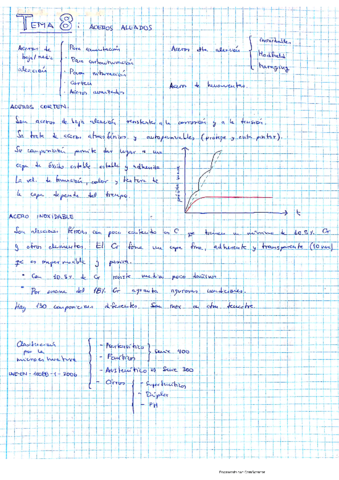 TEMA 8: ACEROS ALEADOS
Aceros de baja/media aleación
- Para cementación
- Para carbonitruración
- Para nitruración
- Corten
- Aceros aleados
Aceros alta aleación
Inoxidables
Hadfield
Maraging
Aceros de herramientas.
ACEROS CORTEN.
Son aceros de baja aleación resistente a la corrosión y a la tensión.
Se trata de aceros atmosféricos y autopasivables (protege y evita pintar).
Su composición permite dar lugar a una
capa de óxido estable y adherente
La vel. de formación, color y textura de
la capa depende del tiempo
pérdida masa
t
ACERO INOXIDABLE
Son aleaciones férreas con poco contenido en C y tienen un mínimo de 10.5% Cr
y otros elementos. El Cr forma una capa fina, adherente y transparente (10 nm)
que es impermeable y pasiva.
• Con 10.5% de Cr resiste medios poco
• Por encima del 18% Cr aguanta rigurosas condiciones.
Hay 130 composiciones diferentes. Son
Clasificación por la microestructura
UNE-EN-10088-1-2006
- Martensítico
- Ferrítico
Serie 400
- Austenítico → Serie 300
- Otros
- Superferríticos
- Dúplex
- PH